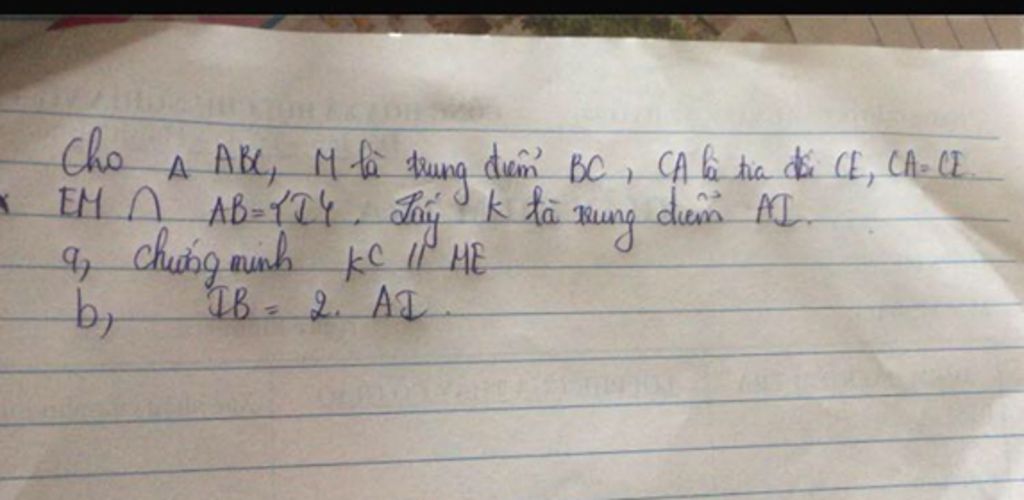 Cho Δ ABC, M là trung điểm BC, CA là tia đối CE, CA = CE.
EM ∩ AB = {I}. Lấy K là trung điểm AI.
a, Chứng minh KC // ME
b, IB = 2. AI.